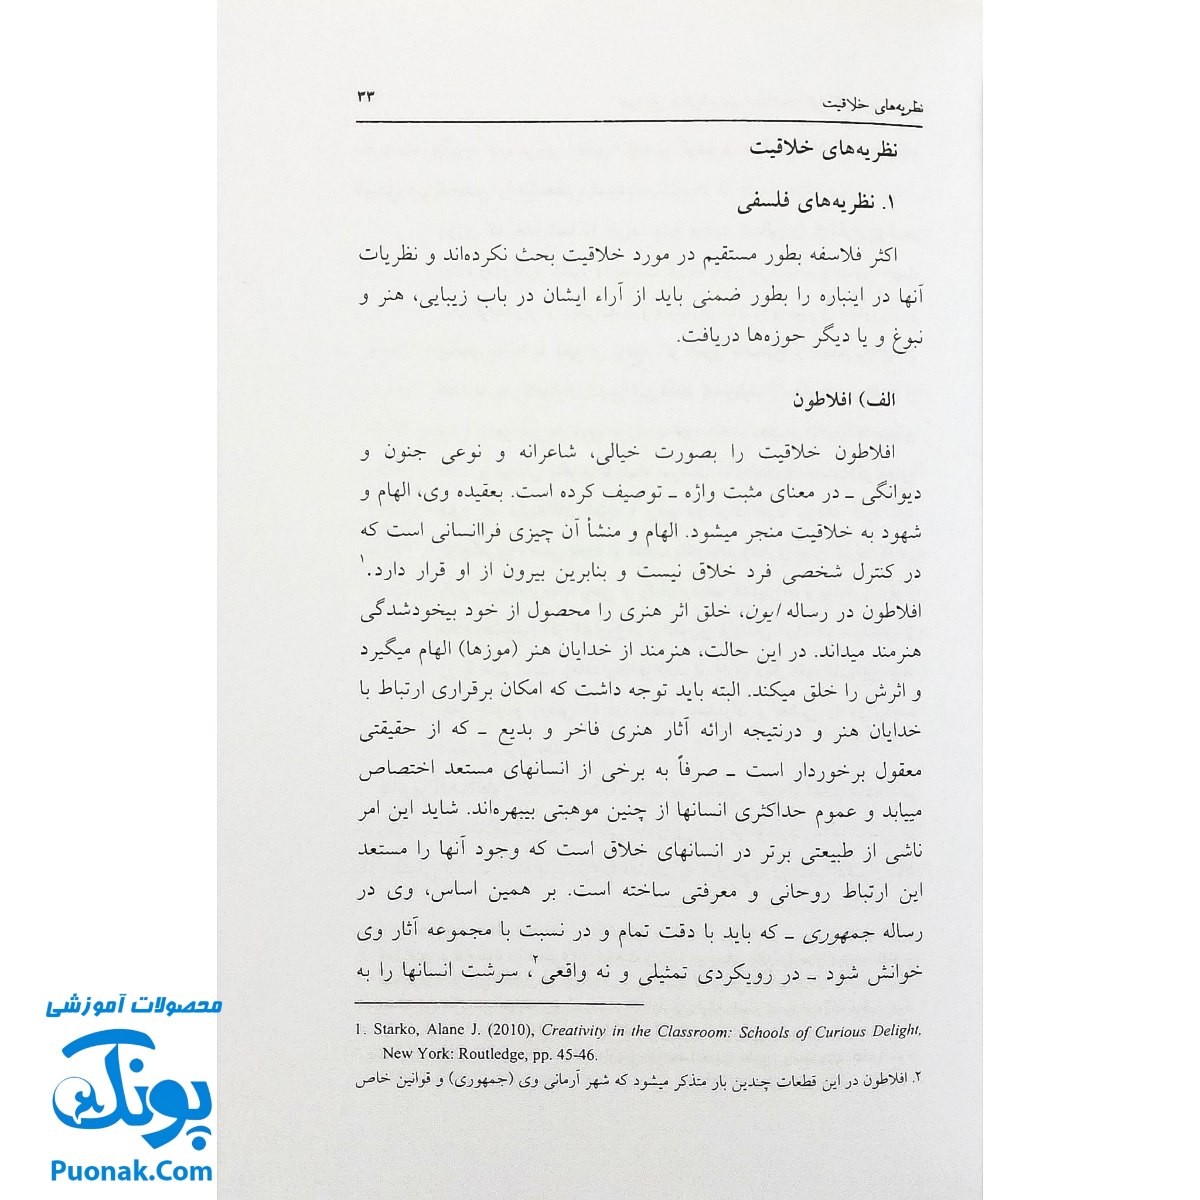 نظریه‌های خلاقیت ۳۳
نظریه‌های خلاقیت
۱. نظریه‌های فلسفی
اکثر فلاسفه بطور مستقیم در مورد خلاقیت بحث نکرده‌اند و نظریات
آنها در اینباره را بطور ضمنی باید از آراء ایشان در باب زیبایی، هنر و
نبوغ و یا دیگر حوزه‌ها دریافت.
الف) افلاطون
افلاطون خلاقیت را بصورت خیالی، شاعرانه و نوعی جنون و
دیوانگی ـ در معنای مثبت واژه ـ توصیف کرده است. بعقیده وی، الهام و
شهود به خلاقیت منجر میشود. الهام و منشأ آن چیزی فراانسانی است که
در کنترل شخصی فرد خلاق نیست و بنابرین بیرون از او قرار دارد.۱
افلاطون در رساله ایون، خلق اثر هنری را محصول از خود بیخودشدگی
هنرمند میداند. در این حالت، هنرمند از خدایان هنر (موزها) الهام میگیرد
و اثرش را خلق میکند. البته باید توجه داشت که امکان برقراری ارتباط با
خدایان هنر و درنتیجه ارائه آثار هنری فاخر و بدیع ـ که از حقیقتی
معقول برخوردار است ـ صرفاً به برخی از انسانهای مستعد اختصاص
مییابد و عموم حداکثری انسانها از چنین موهبتی بیبهره‌اند. شاید این امر
ناشی از طبیعتی برتر در انسانهای خلاق است که وجود آنها را مستعد
این ارتباط روحانی و معرفتی ساخته است. بر همین اساس، وی در
رساله جمهوری ـ که باید با دقت تمام و در نسبت با مجموعه آثار وی
خوانش شود ـ در رویکردی تمثیلی و نه واقعی۲، سرشت انسانها را به
1. Starko, Alane J. (2010), Creativity in the Classroom: Schools of Curious Delight,
New York: Routledge, pp. 45-46.
۲. افلاطون در این قطعات چندین بار متذکر میشود که شهر آرمانی وی (جمهوری) و قوانین خاص
محصولات آموزشی
پونک
Puonak.Com